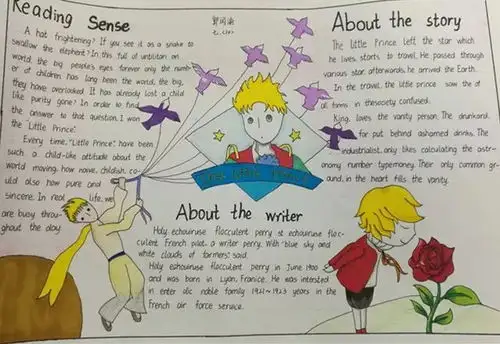 Reading Sense
A hat frightening? If you see it as a snake to
swallow the elephant? In this full of utilitian on
world, the big people's eyes forever only the numb-
er of children has long been the world, the big,
they have overlooked. It has already lost a child
like purity gone? In order to find
the answer to that question, I won
the "Little Prince".
Every time, "Little Prince", have been
such a child-like attitude about the
world moving, how naive, childish, co-
uld also how pure and
sincere. In real life, we
are busy throu-
ghout the day
About the story
The Little Prince left the star which
he lives, starts to travel. He passed through
various star, afterwards, he arrived the Earth.
In the travel, the little prince saw the of
all forms in the society confused.
King, loves the vanity person, The drunkard,
for put behind ashamed drinks, The
industrialist, only likes calculating the astr-
onomy number typemoney. Their only common gr-
ound, in the heart fills the vanity.
The Little Prince
About the writer
Holy echouiruse flocculent perry st echouiruse floc-
culent French pilot, a writer perry. With "blue sky and
white clouds of farmers", said.
Holy echouiruse flocculent perry in June 1900
and was born in Lyon, France. He was interested
in enter alic noble family 1921~1923 years in the
French air force service.